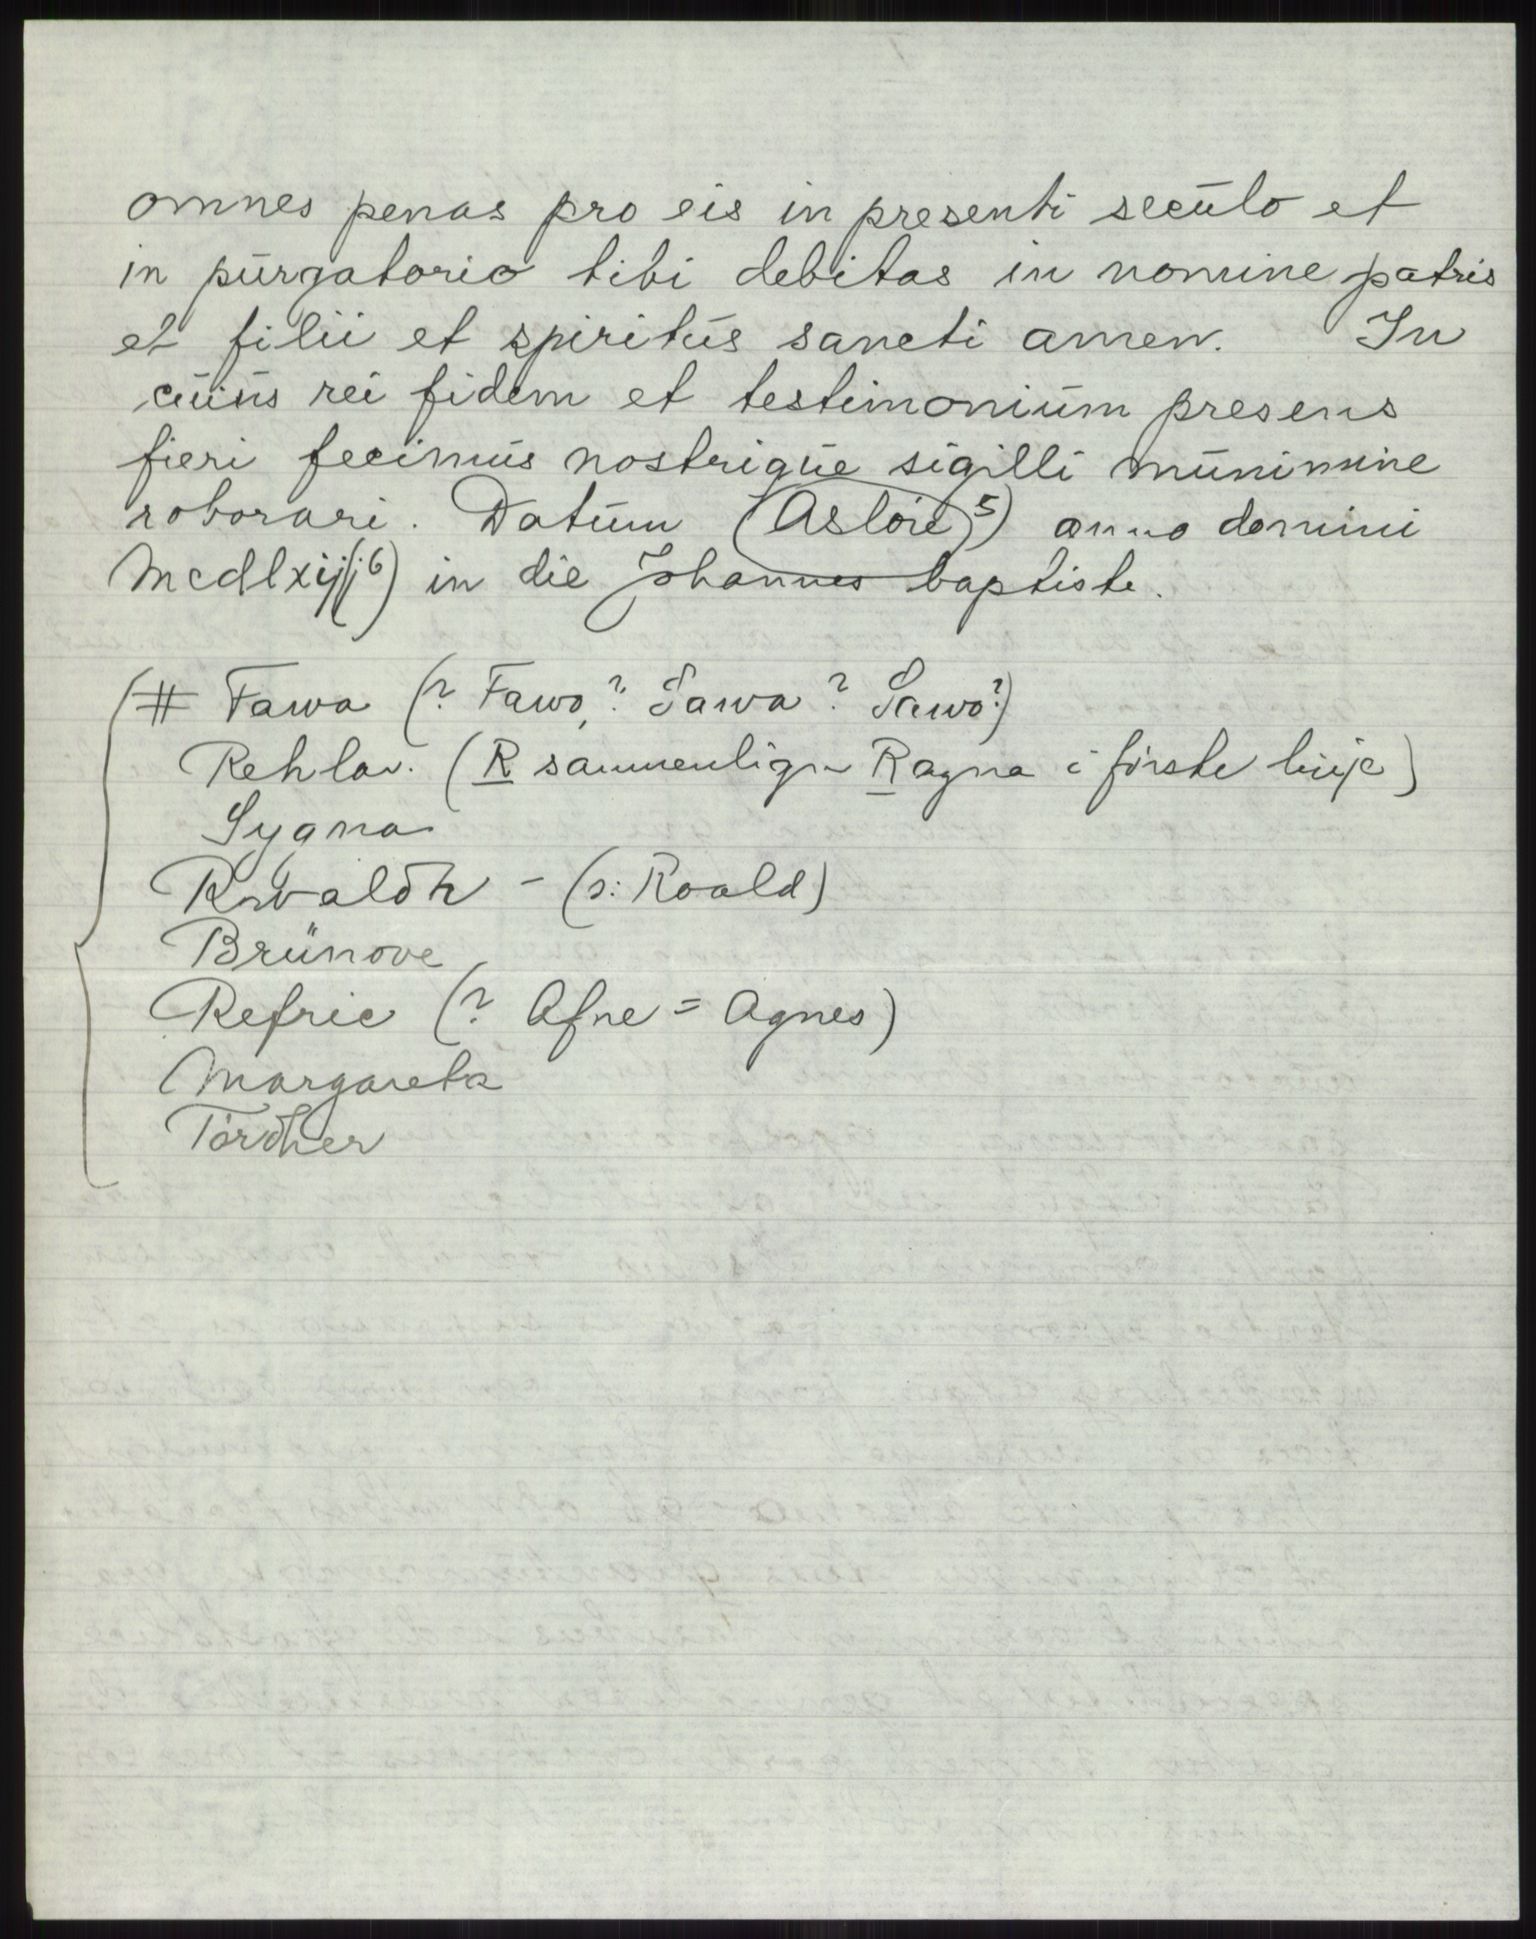 omnes penas pro eis in presenti secŭlo et
in pŭrgatorio tibi debitas in nomine patris
et filii et spiritŭs sancti amen. In
cŭiŭs rei fidem et testimoniŭm presens
fieri fecimŭs nostriqŭe sigilli mŭnimine
roborari. Datŭm (Asloie 5) anno domini
Mcdlxiij (6) in die Johannes baptiste.
# Fawa (? Fawo, ? Sawa ? Sawo?)
Rehlav. (R sammenlign Ragna i første linje)
Sygna
Rwaldh - (ɔ: Roald)
Brŭnove
Refric (? Afne = Agnes)
Margareta
Tördher